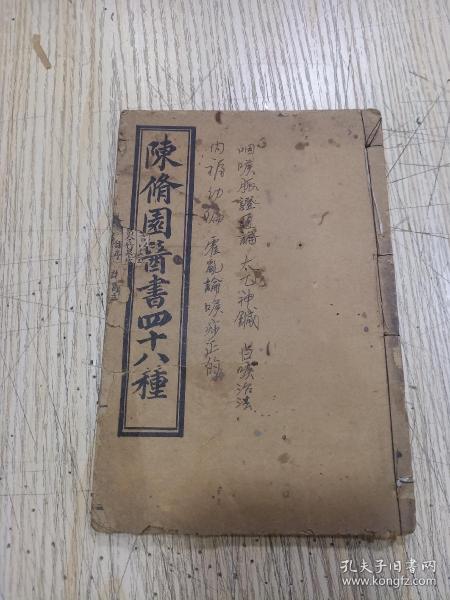 陳脩園醫書四十八種
咽喉脈證通論 太乙神鍼 白喉治法
內 霍亂論 喉痧正的
孔夫子旧书网
www.kongfz.com